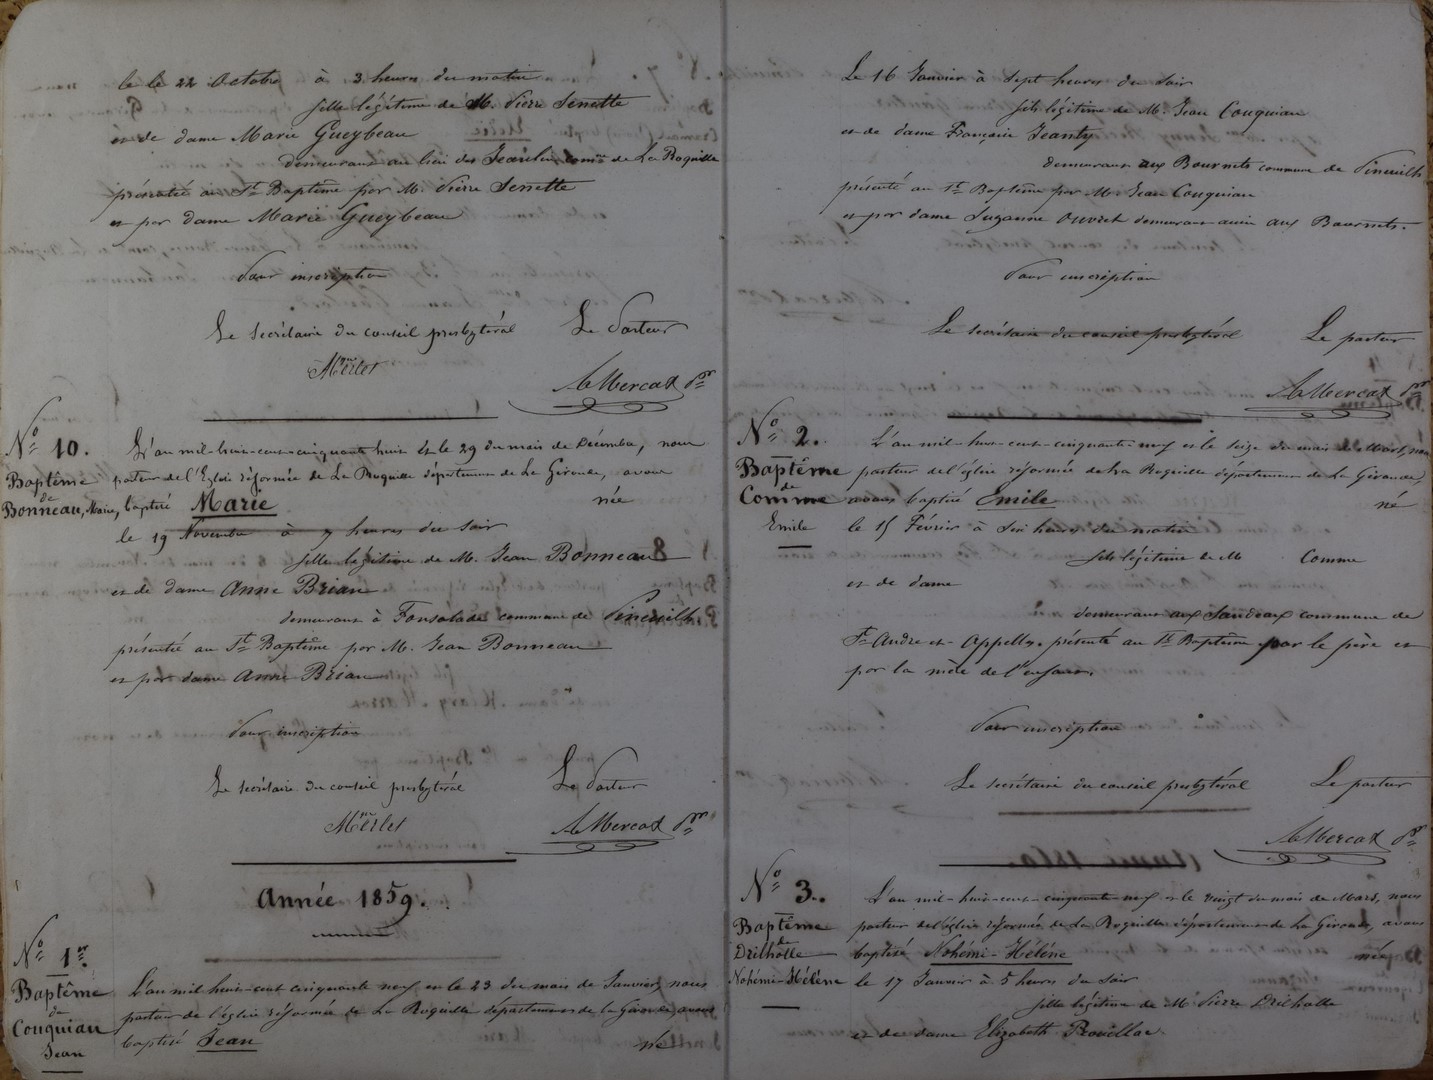 le le 22 Octobre à 3 heures du matin
fille légitime de M. Pierre Senette
et de dame Marie Gueybeau
demeurant au lieu des Jeaulin com.ne de La Roquille
présenté au St Baptême par M. Pierre Senette
et par dame Marie Gueybeau
Pour inscription
Le Secrétaire du conseil presbytéral Le Pasteur
Merlet
A Mercat p.r
N° 10.
Baptême
de
Bonneau, Marie,
L'an mil-huit-cent-cinquante huit et le 29 du mois de Décembre, nous
pasteur de l'Eglise réformée de La Roquille département de La Gironde, avons
baptisé Marie née
le 19 Novembre à 7 heures du soir
fille légitime de M. Jean Bonneau
et de dame Anne Briau
demeurant à Fonsalade commune de Pineuilh
présenté au St Baptême par M. Jean Bonneau
et par dame Anne Briau
Pour inscription
Le secrétaire du conseil presbytéral Le Pasteur
Merlet
A Mercat p.r
Année 1859.
N° 1er
Baptême
de
Couquiau
Jean
L'an mil huit-cent cinquante neuf et le 23 du mois de Janvier, nous
pasteur de l'église réformée de La Roquille département de la Gironde avons
baptisé Jean né
Le 16 Janvier à sept heures du soir
fils légitime de M. Jean Couquiau
et de dame Françoise Jeanty
demeurant aux Bournets commune de Pineuilh
présenté au St Baptême par M. Jean Couquiau
et par dame Suzanne Ouvret demeurant aussi aux Bournets.
Pour inscription
Le secrétaire du conseil presbytéral Le pasteur
A Mercat p.r
N° 2.
Baptême
de
Comme
Emile
L'an mil-huit-cent-cinquante-neuf et le seize du mois de Mars, nous
pasteur de l'église réformée de La Roquille département de La Gironde,
avons baptisé Emile né
le 15 Février à six heures du matin
fils légitime de M Comme
et de dame
demeurant aux Sandeaux commune de
St André et Appelles présenté au St Baptême par le père et
par la mère de l'enfant.
Pour inscription
Le secrétaire du conseil presbytéral Le pasteur
A Mercat p.r
N° 3.
Baptême
de
Drilholle
Nohémi-Hélène
L'an mil-huit-cent-cinquante neuf et le vingt du mois de Mars, nous
pasteur de l'église réformée de La Roquille département de La Gironde, avons
baptisé Nohémi-Hélène née
le 17 Janvier à 5 heures du soir
fille légitime de M. Pierre Drilholle
et de dame Elizabeth Rouillac